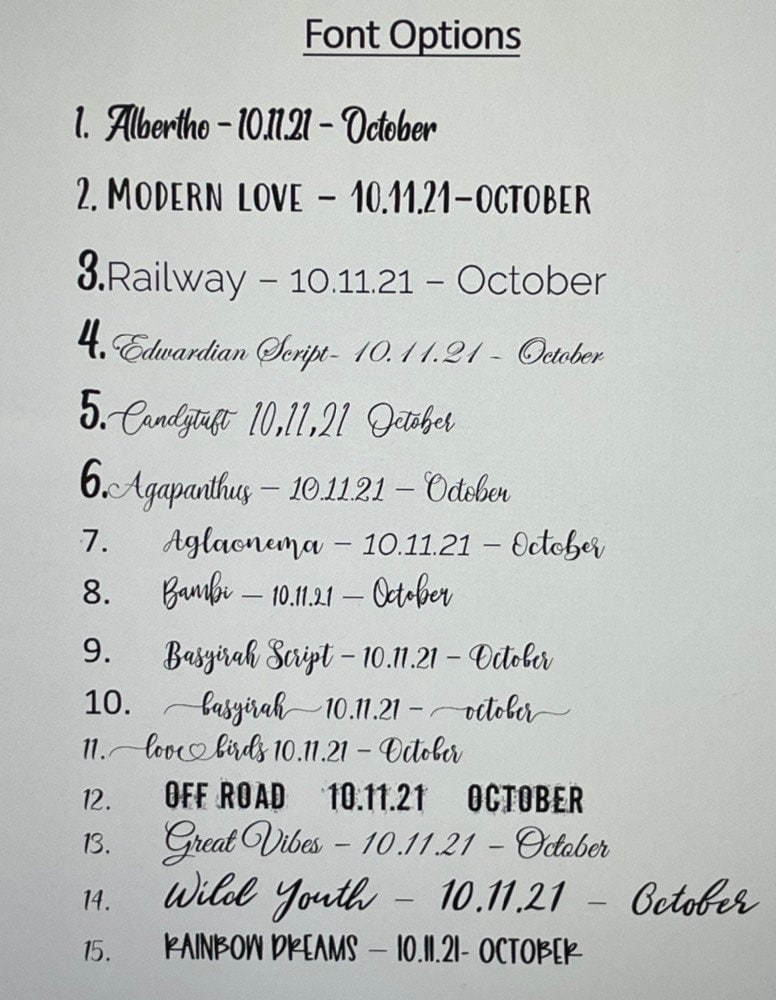 Font Options
1. Albertho - 10.11.21 - October
2. MODERN LOVE - 10.11.21-OCTOBER
3.Railway – 10.11.21 – October
4. Edwardian Script- 10.11.21 - October
5. Candytuft 10,11,21 October
6. Agapanthus – 10.11.21 – October
7. Aglaonema – 10.11.21 – October
8. Bambi – 10.11.21 – October
9. Basyirah Script – 10.11.21 – October
10. basyirah 10.11.21 – october
11. love♡birds 10.11.21 – October
12. OFF ROAD 10.11.21 OCTOBER
13. Great Vibes – 10.11.21 – October
14. Wild Youth – 10.11.21 – October
15. RAINBOW DREAMS – 10.11.21- OCTOBER